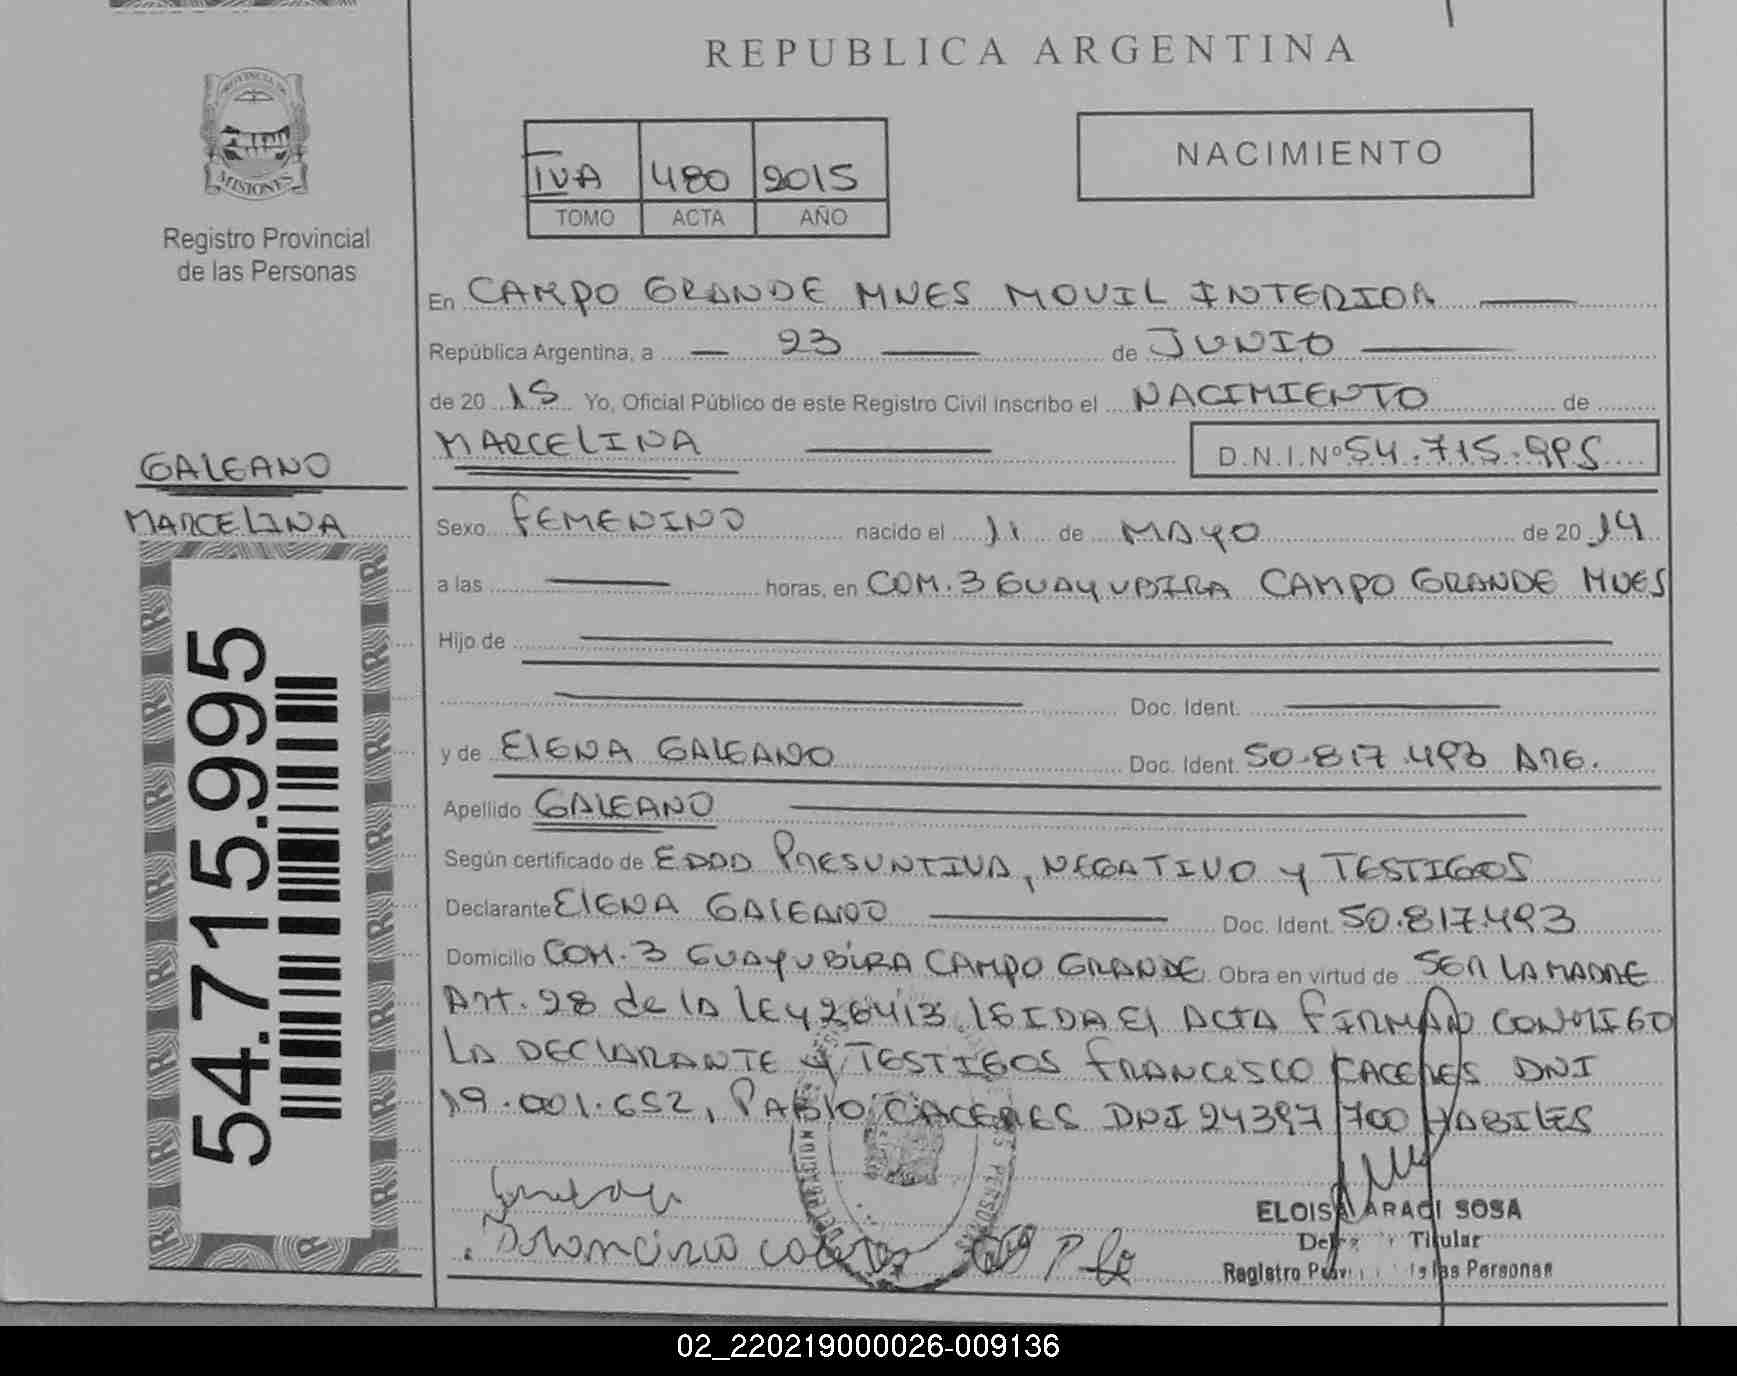 REPUBLICA ARGENTINA
PROVINCIA DE
MISIONES
Registro Provincial
de las Personas
IVA 480 2015
TOMO ACTA AÑO
NACIMIENTO
En CAMPO GRANDE MNES MOVIL INTERIOR
República Argentina, a 23 de JUNIO
de 20 15 Yo, Oficial Público de este Registro Civil inscribo el NACIMIENTO de
MARCELINA D.N.I.Nº 54.715.995
GALEANO
MARCELINA
54.715.995
Sexo FEMENINO nacido el 11 de MAYO de 20 14
a las horas, en COM. 3 GUAYUBIRA CAMPO GRANDE MNES
Hijo de
Doc. Ident.
y de ELENA GALEANO Doc. Ident. 50.817.493 ARG.
Apellido GALEANO
Según certificado de EDAD PRESUNTIVA, NEGATIVO Y TESTIGOS
Declarante ELENA GALEANO Doc. Ident. 50.817.493
Domicilio COM. 3 GUAYUBIRA CAMPO GRANDE Obra en virtud de SER LA MADRE
Art. 28 de la LEY 26413. LEIDA EL ACTA FIRMAN CONMIGO
LA DECLARANTE Y TESTIGOS FRANCISCO CACERES DNI
19.001.652, PABLO CACERES DNI 24397700 HABILES
ELOISA ARACI SOSA
Titular
Registro de las Personas
02_220219000026-009136